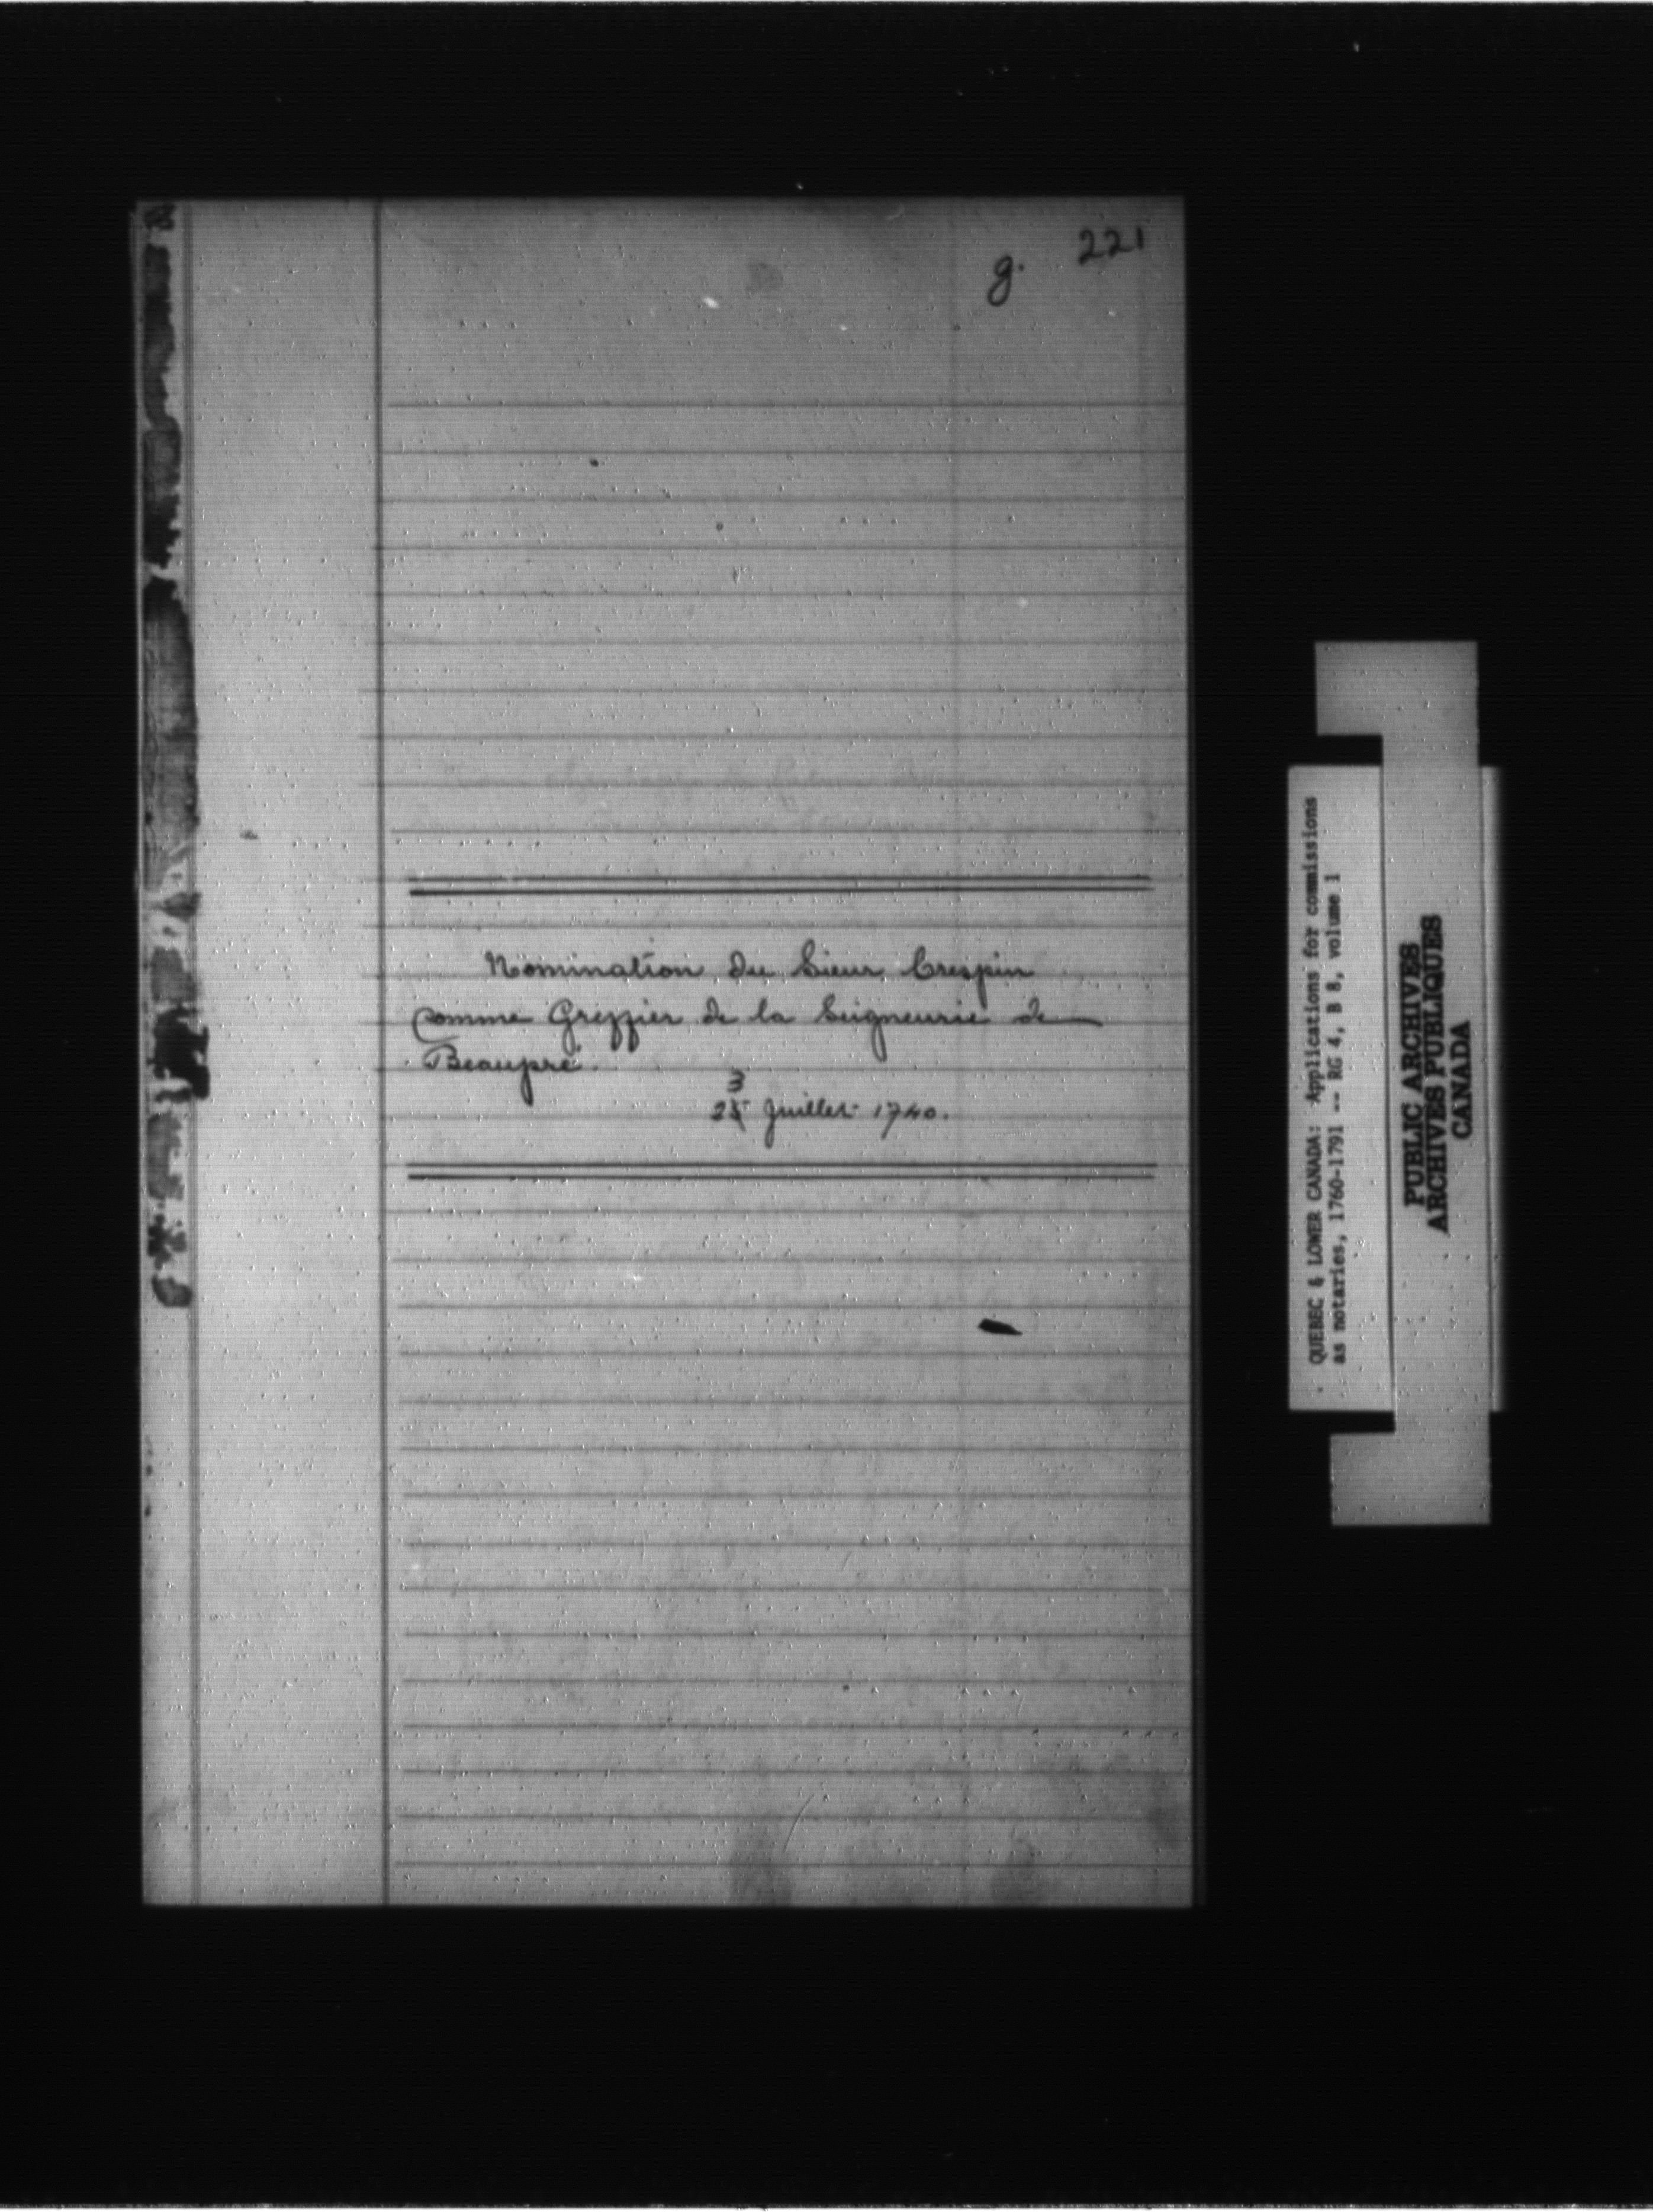 221
g.
Nomination du Sieur Crespin
comme Greffier de la Seigneurie de
Beaupré.
3
25 Juillet 1740.
QUEBEC & LOWER CANADA: Applications for commissions
as notaries, 1760-1791 -- RG 4, B 8, volume 1
PUBLIC ARCHIVES
ARCHIVES PUBLIQUES
CANADA